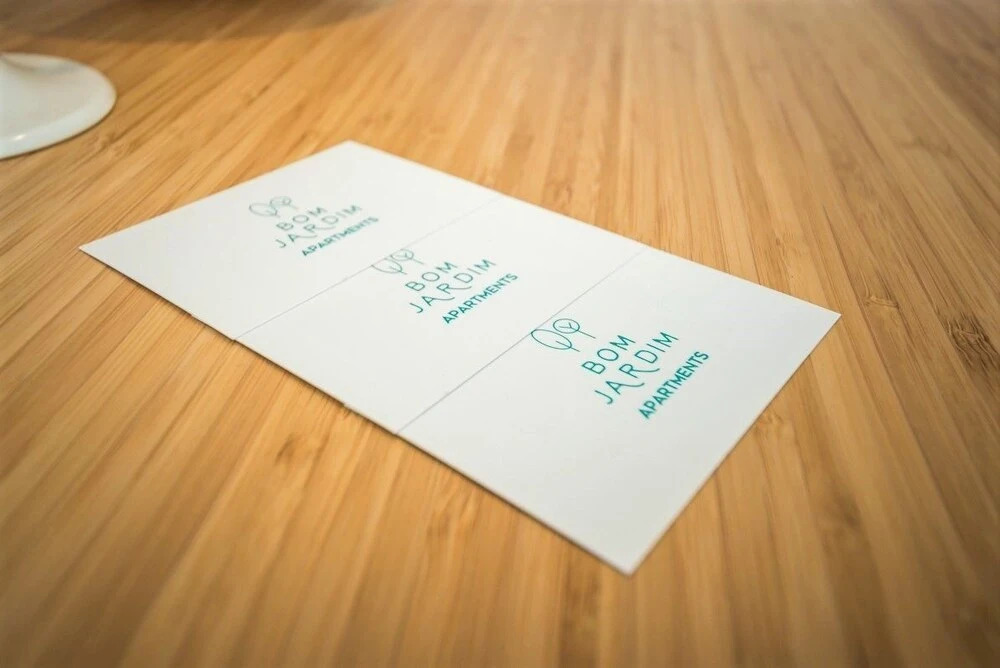 BOM
JARDIM
APARTMENTS
BOM
JARDIM
APARTMENTS
BOM
JARDIM
APARTMENTS